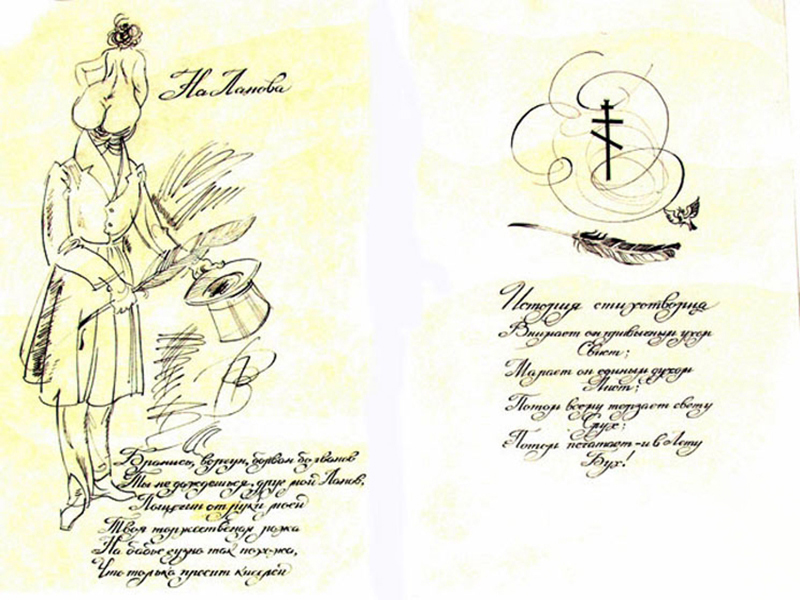 На Ланова
Бранись, ворчун, болван болванов
Ты не дождешься, друг мой Ланов,
Пощечин от руки моей
Твоя торжественная рожа
На бабье гузно так похожа,
Что только просит киселей
История стихотворца
Внимает он привычным ухом
Свист;
Марает он единым духом
Лист;
Потом всему терзает свету
Слух;
Потом печатает-и в Лету
Бух!